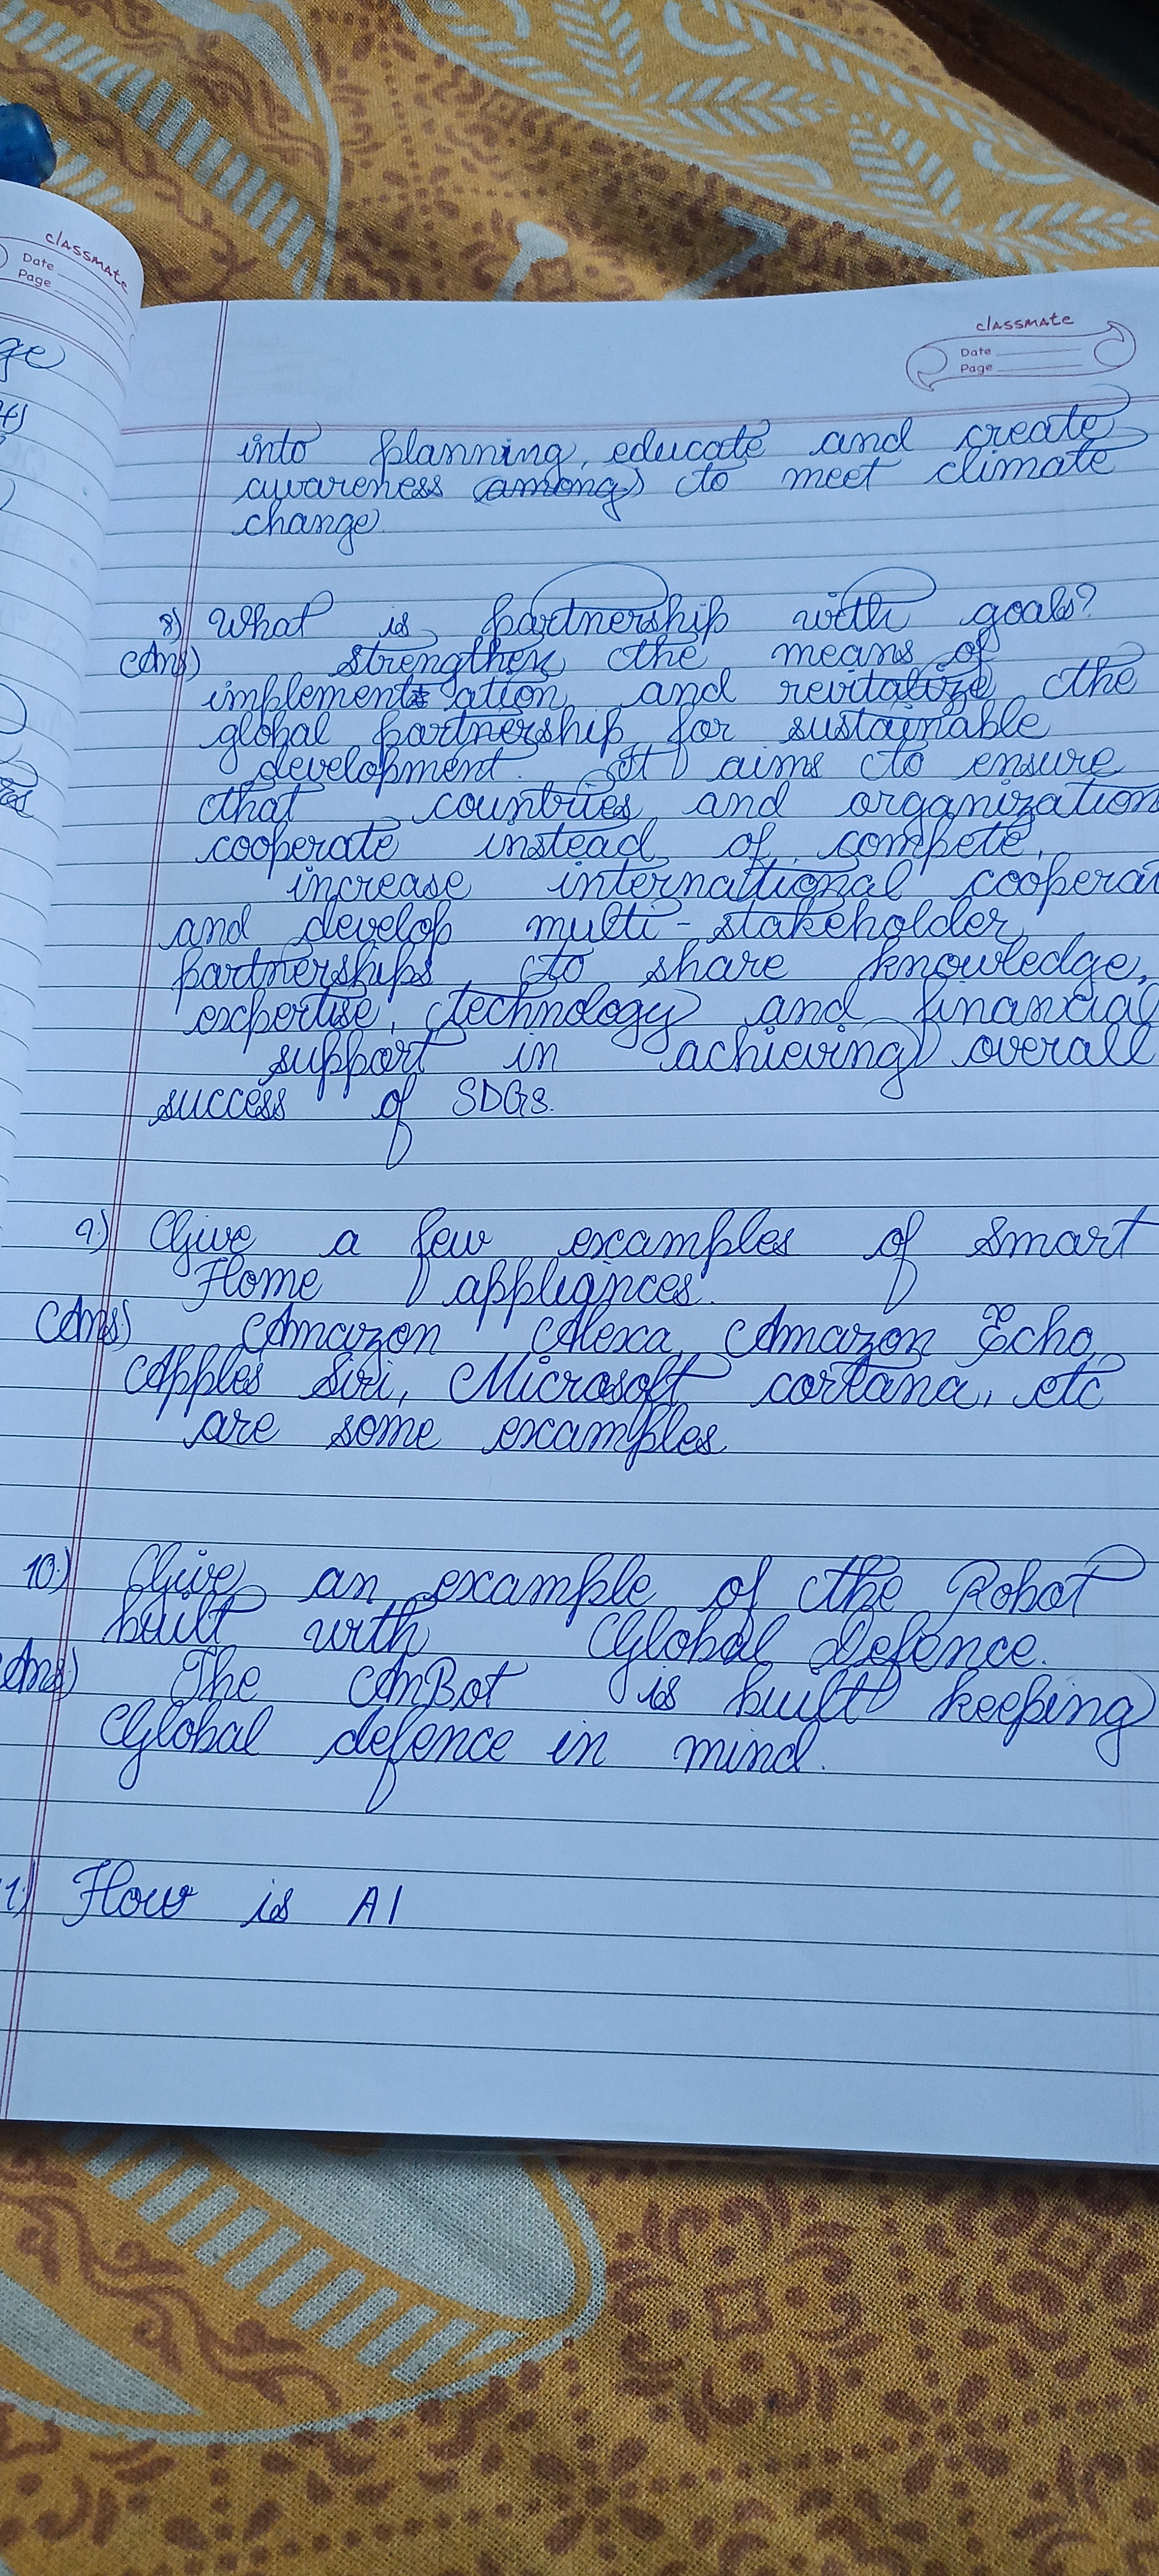 classmate
Date
Page
ge
classmate
Date
Page
into planning, educate and create
awareness among to meet climate
change.
8) What is partnership with goals?
Ans) strengthen the means of
implementation and revitalize the
global partnership for sustainable
development. It aims to ensure
that countries and organization
cooperate instead of compete,
increase international cooperat
and develop multi-stakeholder
partnerships to share knowledge,
expertise, technology and financial
support in achieving overall
success of SDGs.
9.) Give a few examples of Smart
Home appliances.
Ans) Amazon Alexa, Amazon Echo,
Apples Siri, Microsoft cortana, etc
are some examples.
10.) Give an example of the Robot
built with Global Defence.
Ans) The AnBot is built keeping
Global defence in mind.
1.) How is AI